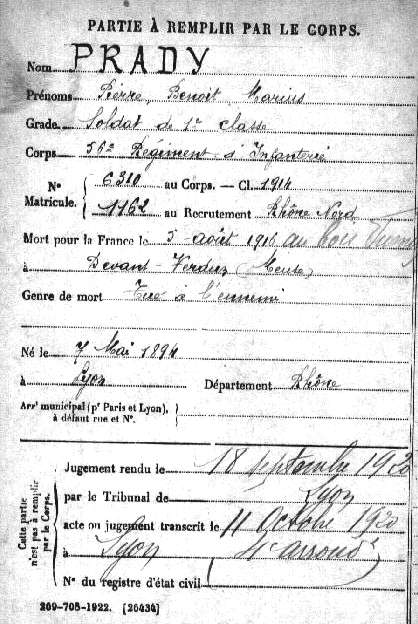 PARTIE À REMPLIR PAR LE CORPS.
Nom PRADY
Prénoms Pierre, Benoit Marius
Grade Soldat de 1re classe
Corps 56e Régiment d'Infanterie
N° Matricule. { 6310 au Corps. — Cl. 1914
1162 au Recrutement Rhône Nord
Mort pour la France le 5 août 191 au bois
à Devant-Verdun (Meuse)
Genre de mort Tué à l'ennemi
Né le 7 Mai 1894
à Lyon Département Rhône
Arrt municipal (pr Paris et Lyon), à défaut rue et N°.
Cette partie n'est pas à remplir par le Corps.
Jugement rendu le 18 septembre 1920
par le Tribunal de Lyon
acte ou jugement transcrit le 11 Octobre 1920
à Lyon 4e arrond
N° du registre d'état civil
269-708-1922. [26434]